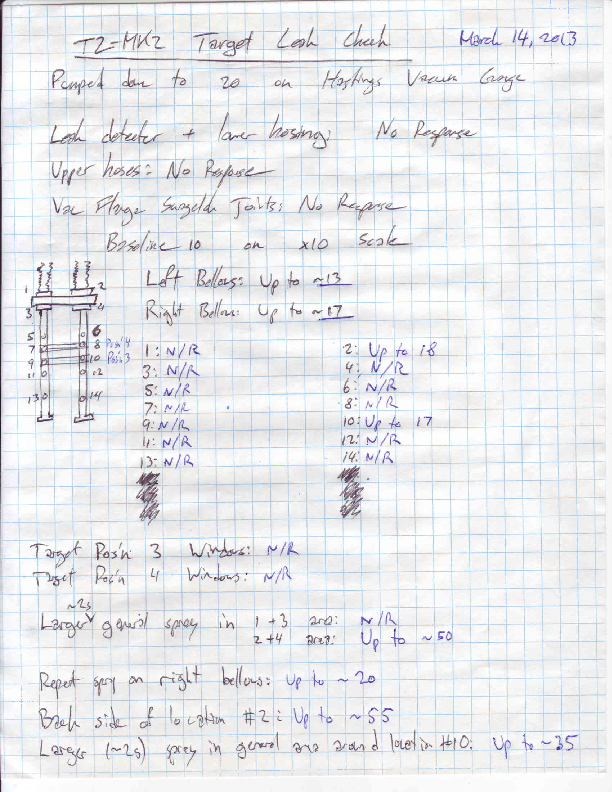 T2-MK2 Target Leak Check March 14, 2013
Pumped down to 20 on Hastings Vacuum Gauge
Leak detector + lower housing: No Response
Upper hoses: No Response
Vac Flange Swagelok Joints: No Response
Baseline 10 on x10 Scale
Left Bellows: Up to ~13
Right Bellows: Up to ~17
1 2
3 4
5 6
7 8 Pos'n 4
9 10 Pos'n 3
11 12
13 14
1: N/R 2: Up to 18
3: N/R 4: N/R
5: N/R 6: N/R
7: N/R 8: N/R
9: N/R 10: Up to 17
11: N/R 12: N/R
13: N/R 14: N/R
Target Pos'n 3 Windows: N/R
Target Pos'n 4 Windows: N/R
~2s
Larger general spray in 1+3 area: N/R
2+4 area: Up to ~50
Repeat spray on right bellows: Up to ~20
Back side of location #2: Up to ~55
Larger (~2s) spray in general area around location #10: Up to ~35